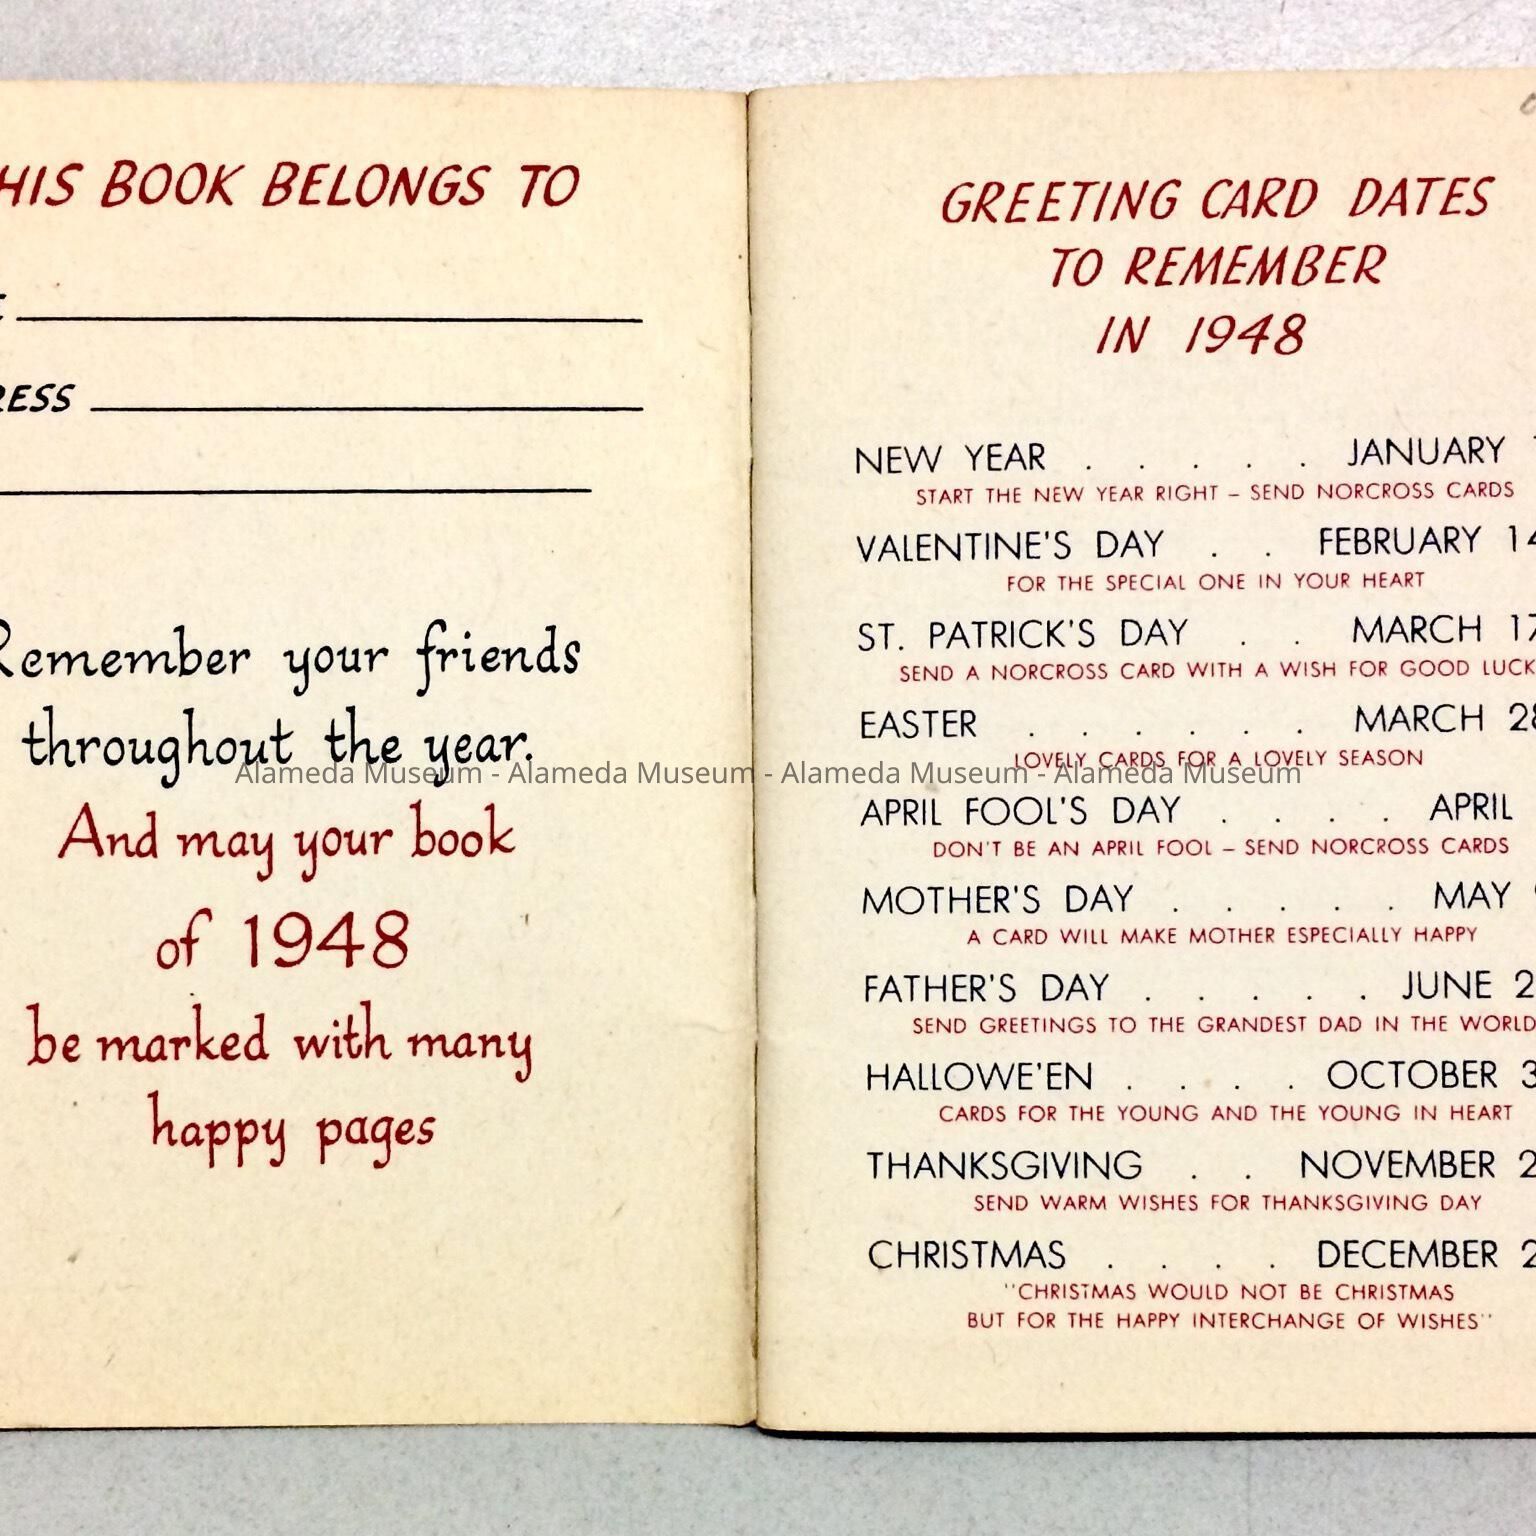 HIS BOOK BELONGS TO
E
RESS
Remember your friends
throughout the year.
And may your book
of 1948
be marked with many
happy pages
GREETING CARD DATES
TO REMEMBER
IN 1948
NEW YEAR . . . . . JANUARY 1
START THE NEW YEAR RIGHT – SEND NORCROSS CARDS
VALENTINE'S DAY . . FEBRUARY 14
FOR THE SPECIAL ONE IN YOUR HEART
ST. PATRICK'S DAY . . MARCH 17
SEND A NORCROSS CARD WITH A WISH FOR GOOD LUCK
EASTER . . . . . . MARCH 28
LOVELY CARDS FOR A LOVELY SEASON
APRIL FOOL'S DAY . . . . APRIL
DON'T BE AN APRIL FOOL – SEND NORCROSS CARDS
MOTHER'S DAY . . . . . MAY 9
A CARD WILL MAKE MOTHER ESPECIALLY HAPPY
FATHER'S DAY . . . . . JUNE 2
SEND GREETINGS TO THE GRANDEST DAD IN THE WORLD
HALLOWE'EN . . . . OCTOBER 3
CARDS FOR THE YOUNG AND THE YOUNG IN HEART
THANKSGIVING . . NOVEMBER 2
SEND WARM WISHES FOR THANKSGIVING DAY
CHRISTMAS . . . . DECEMBER 2
"CHRISTMAS WOULD NOT BE CHRISTMAS
BUT FOR THE HAPPY INTERCHANGE OF WISHES"
Alameda Museum - Alameda Museum - Alameda Museum - Alameda Museum